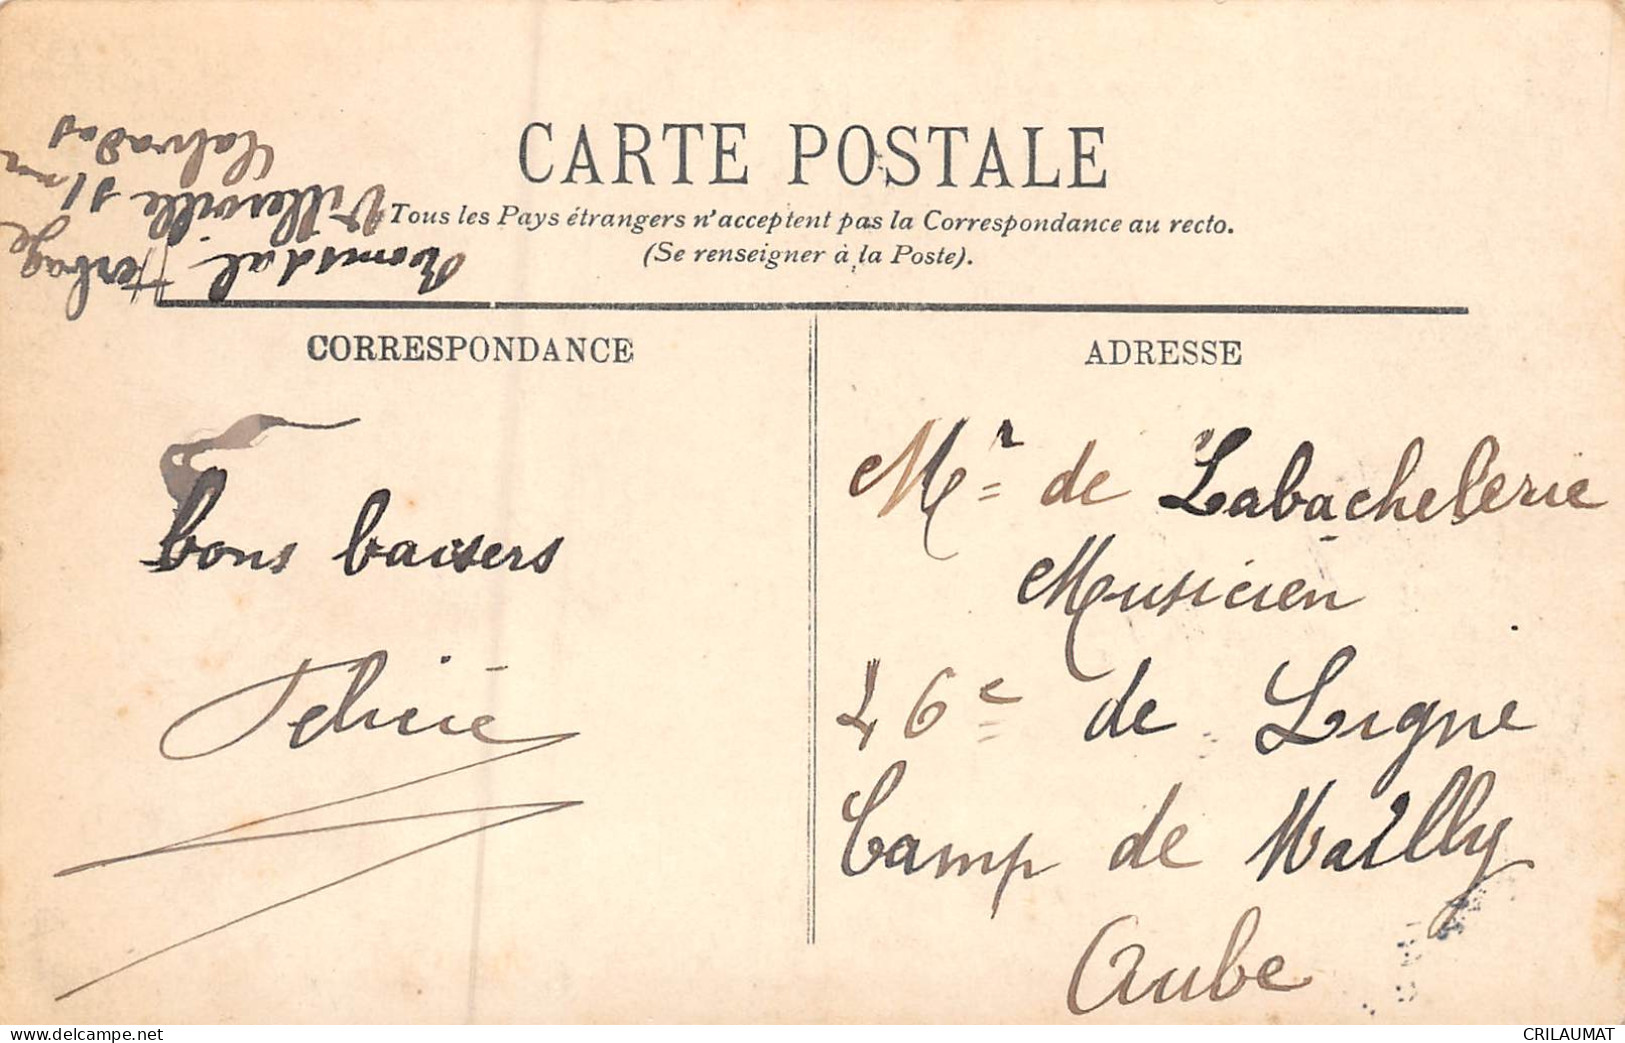 CARTE POSTALE
Tous les Pays étrangers n'acceptent pas la Correspondance au recto.
(Se renseigner à la Poste).
Villerville
Calvados
CORRESPONDANCE
bons baisers
Felicie
ADRESSE
Mr de Labachelerie
Musicien
46e de Ligne
Camp de Mailly
Aube
delcampe.net
CRILAUMAT